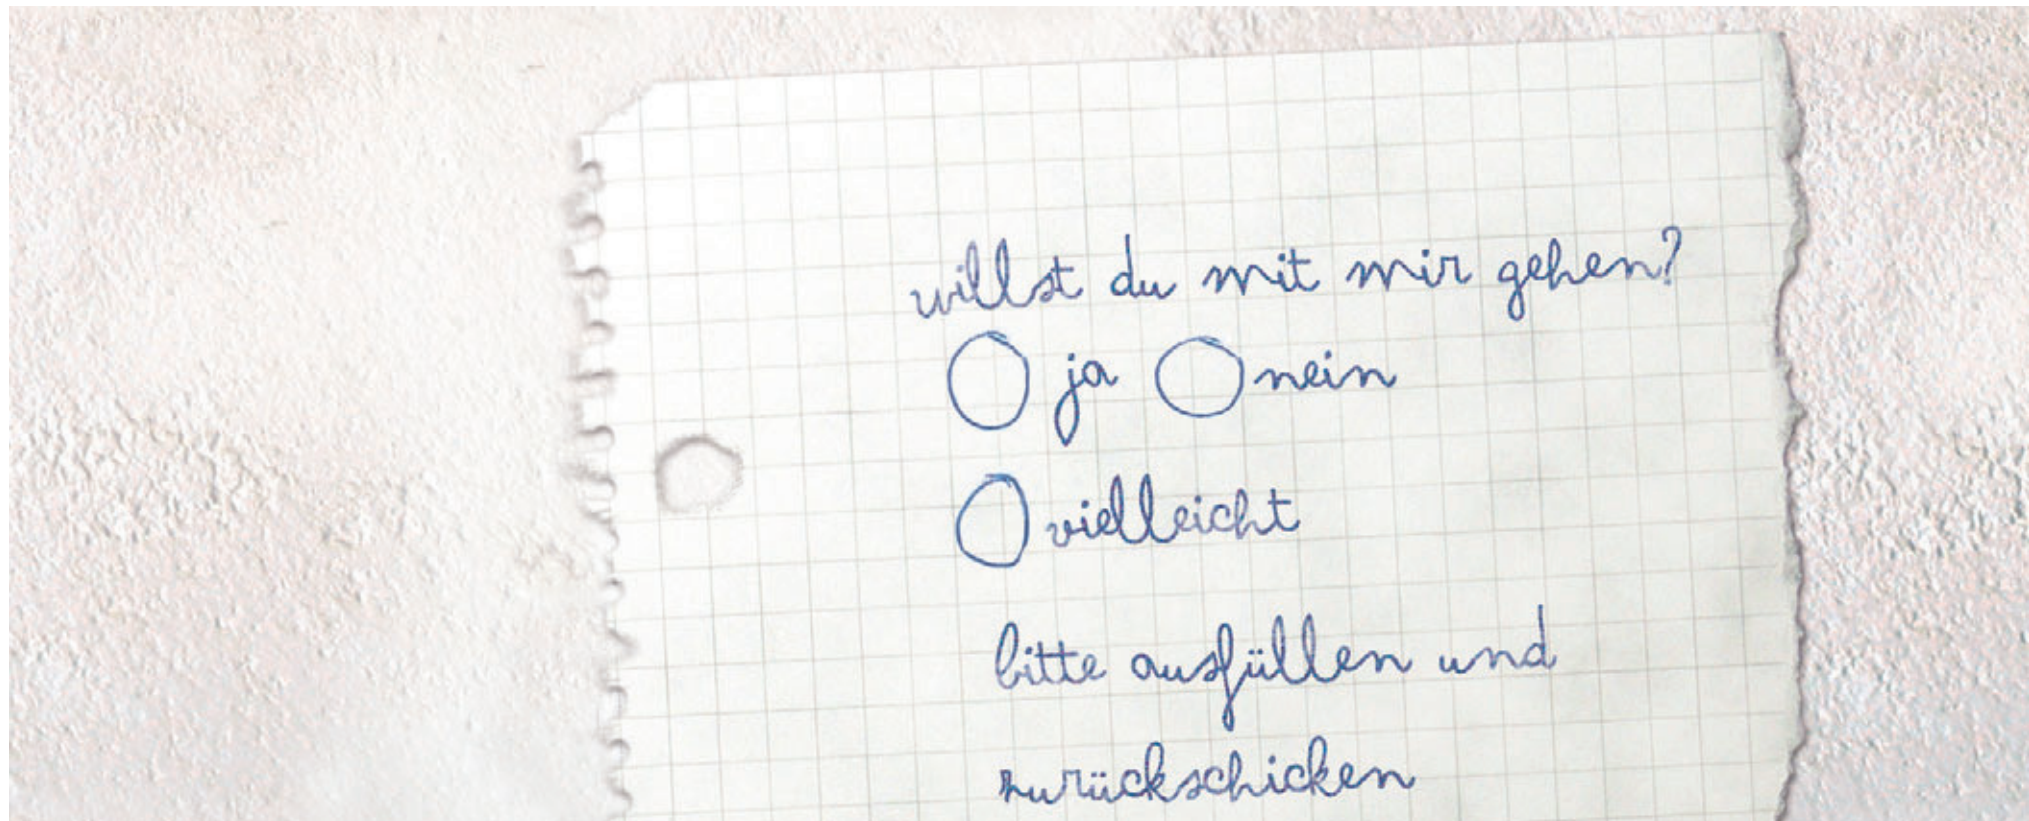 willst du mit mir gehen?
ja nein
vielleicht
bitte ausfüllen und
zurückschicken